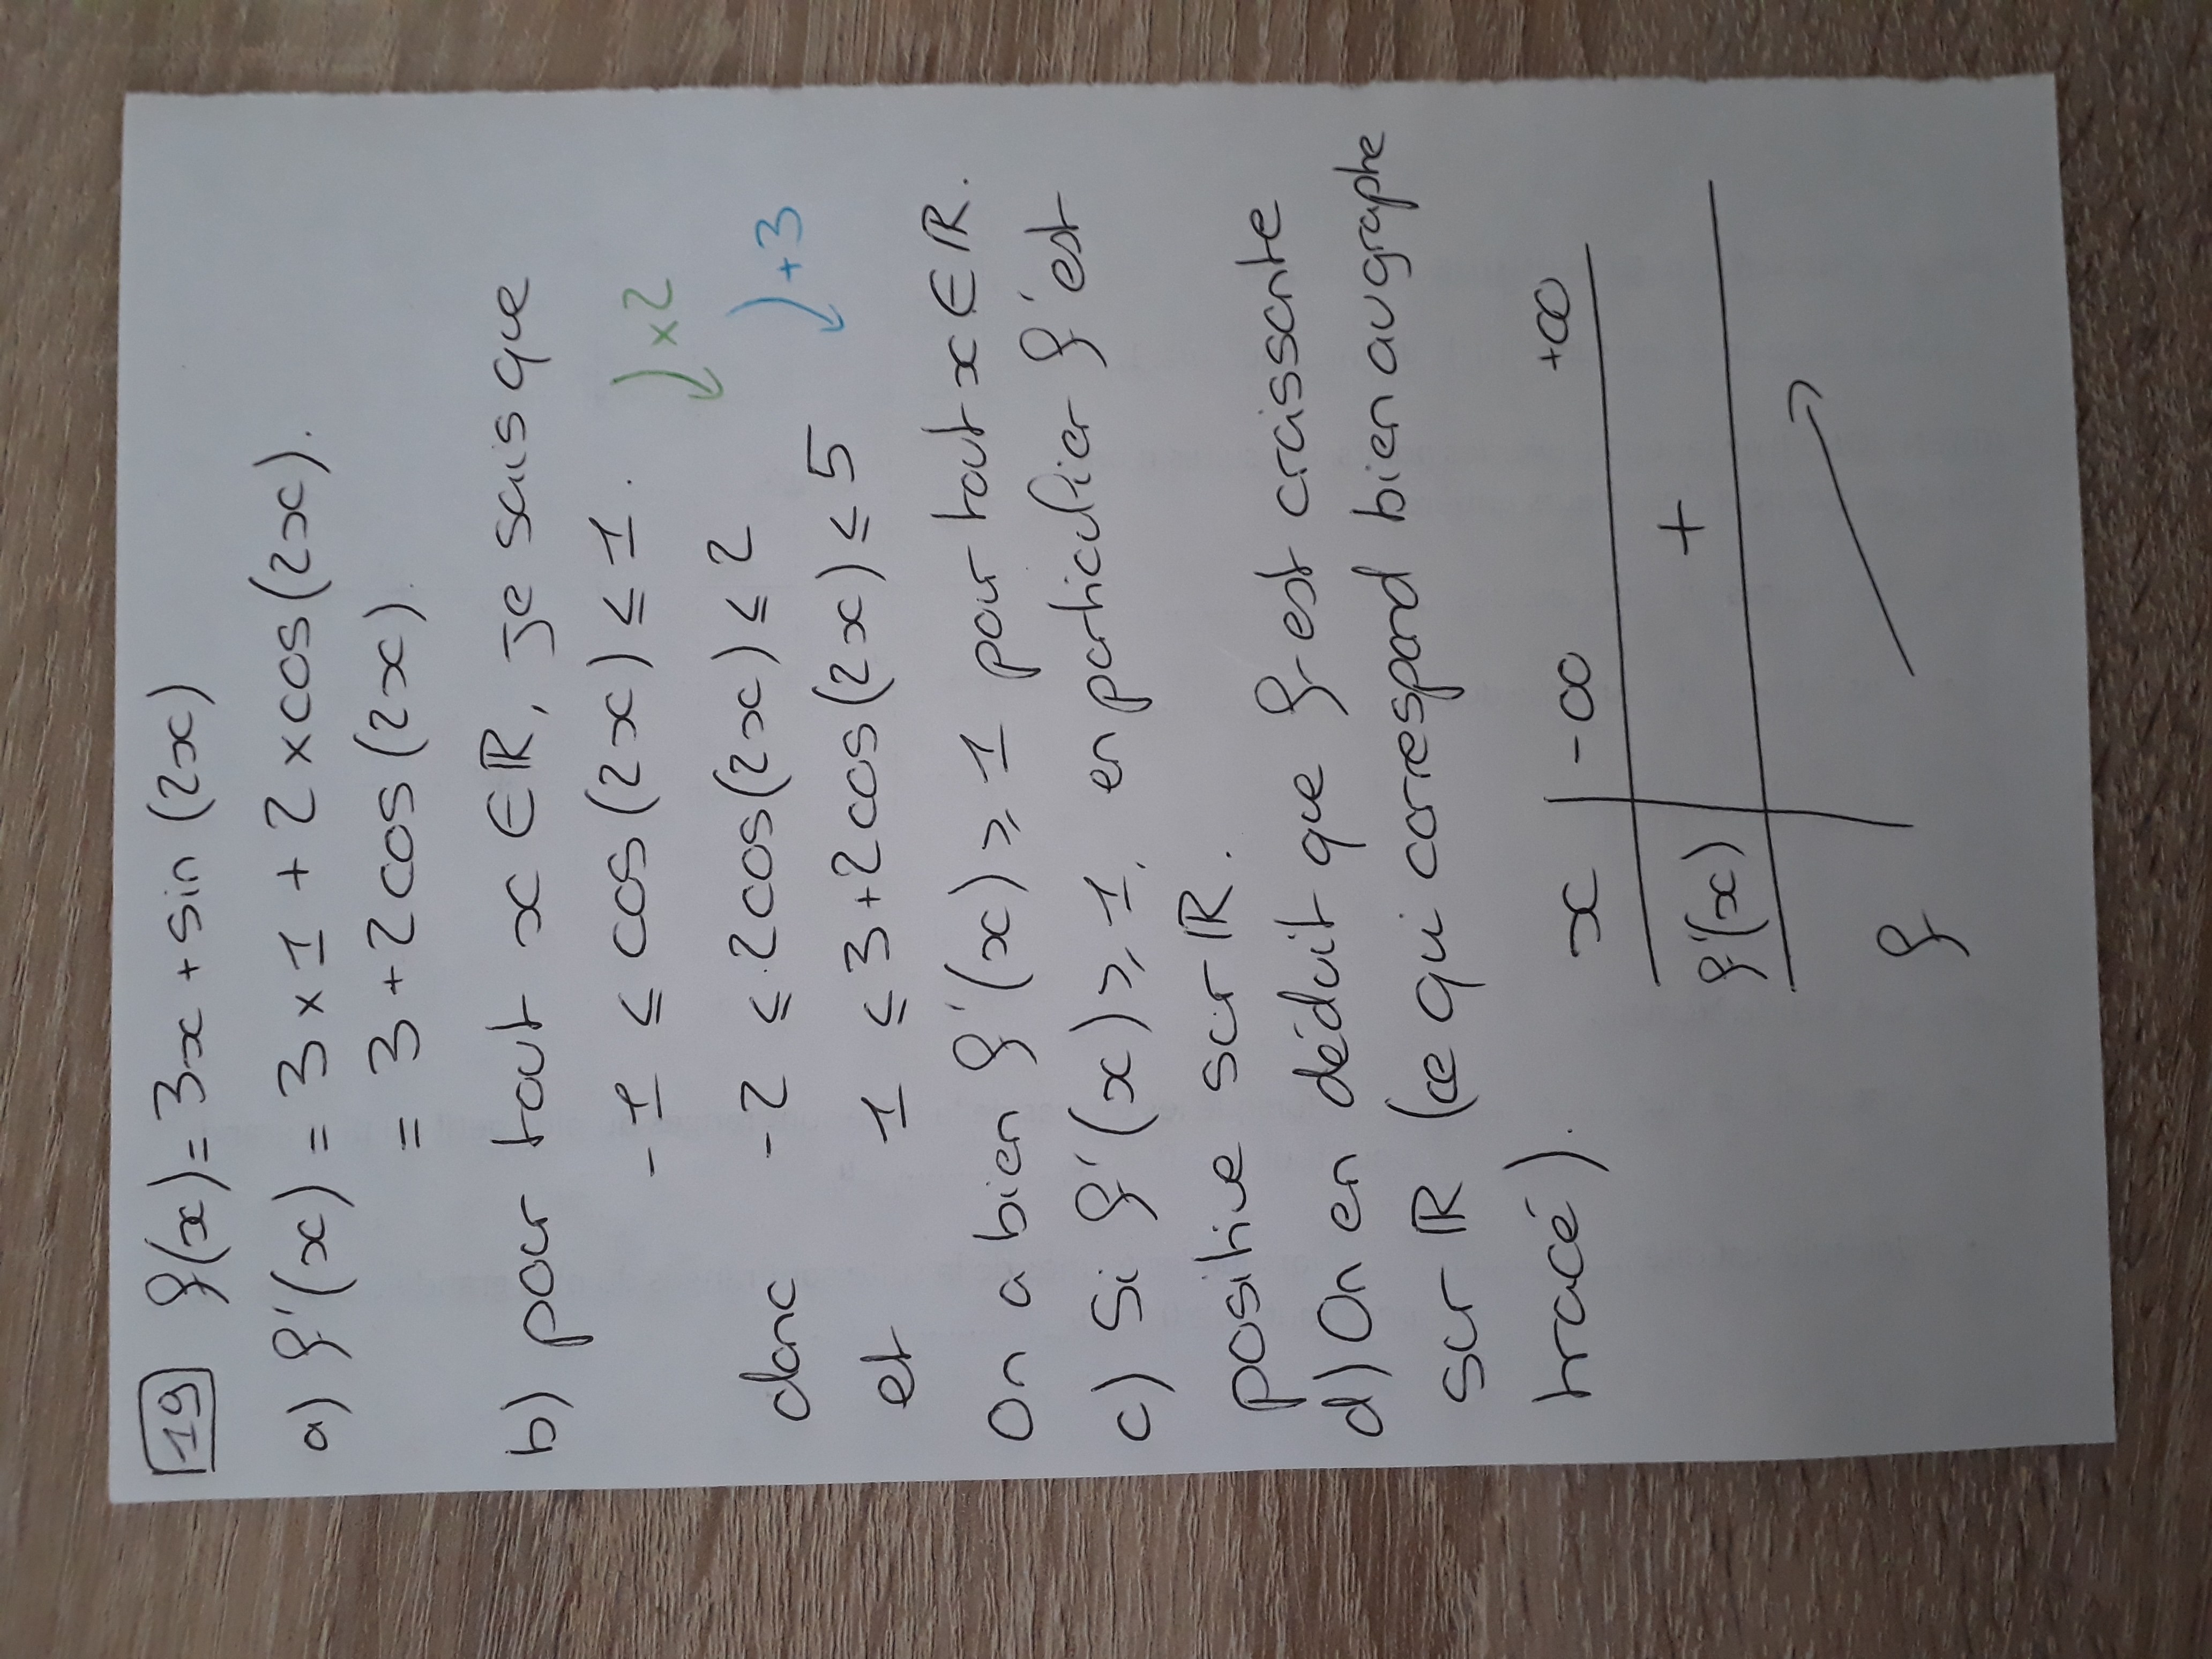 19 f(x) = 3x + sin (2x)
a) f'(x) = 3 × 1 + 2 × cos(2x).
= 3 + 2 cos (2x).
b) pour tout x ∈ ℝ, je sais que
-1 ≤ cos(2x) ≤ 1.
×2
donc -2 ≤ 2cos(2x) ≤ 2
+3
et 1 ≤ 3+2cos(2x) ≤ 5
On a bien f'(x) ≥ 1 pour tout x ∈ ℝ.
c) Si f'(x) ≥ 1, en particulier f' est
positive sur ℝ.
d) On en déduit que f est croissante
sur ℝ (ce qui correspond bien au graphe
tracé).
x -∞ +∞
f'(x) +
f